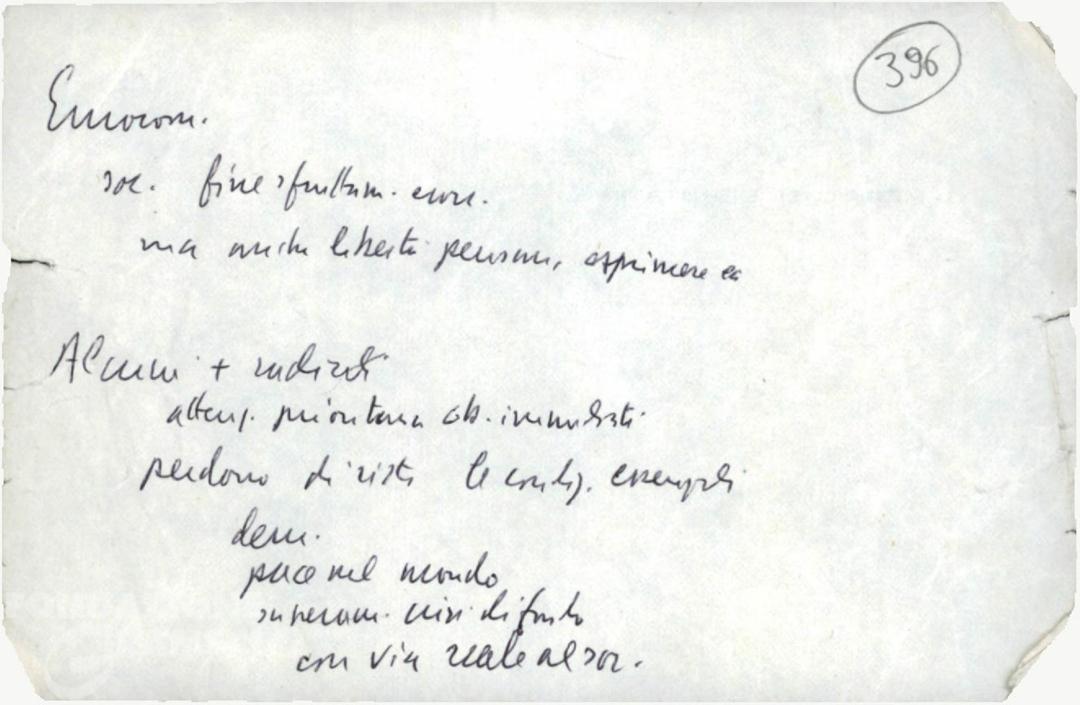 396
Eurocom.
soc. fine sfruttam. econ.
ma anche libertà pensare, esprimere ec
Alcuni + radicali
attenz. prioritaria ob. immediati
perdono di vista le condiz. essenziali
dem.
pace nel mondo
superam. crisi di fondo
con via reale al soc.